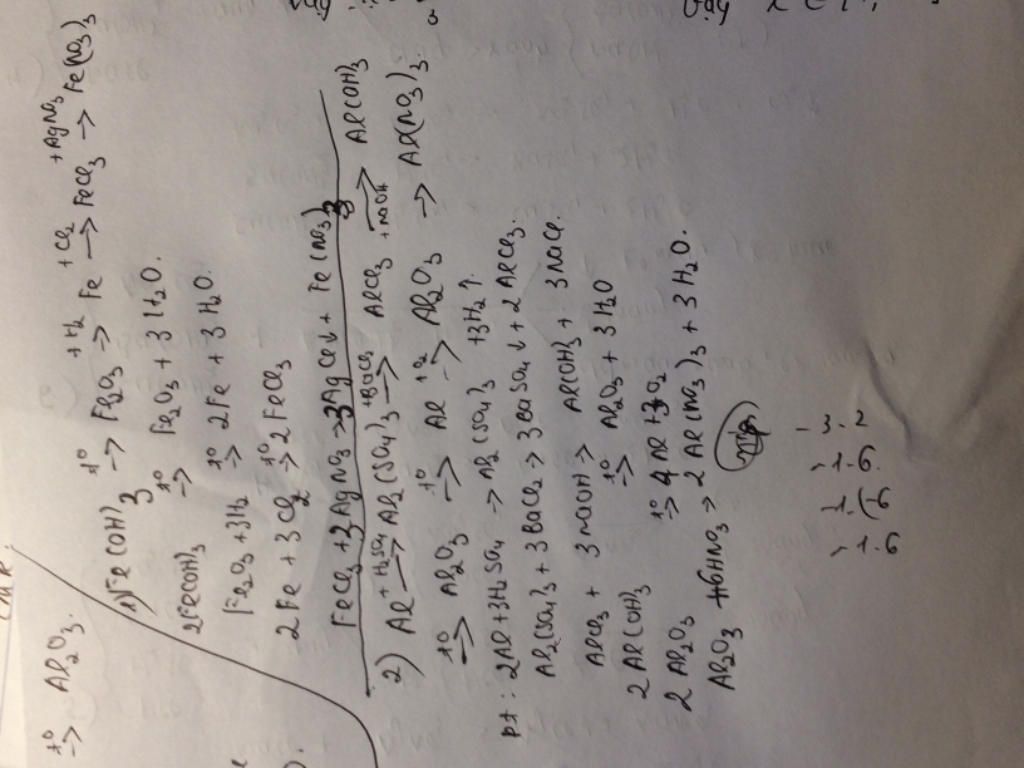 t° → Al2O3.
1) Fe(OH)3 t° → Fe2O3 +H2 → Fe +Cl2 → FeCl3 +AgNO3 → Fe(NO3)3
2Fe(OH)3 t° → Fe2O3 + 3H2O.
Fe2O3 + 3H2 t° → 2Fe + 3H2O.
2Fe + 3Cl2 t° → 2FeCl3
FeCl3 + 3AgNO3 → 3AgCl↓ + Fe(NO3)3
2) Al +H2SO4 → Al2(SO4)3 +BaCl2 → AlCl3 +NaOH → Al(OH)3
t° → Al2O3 t° → Al +O2 → Al2O3 → Al(NO3)3.
pt : 2Al + 3H2SO4 → Al2(SO4)3 + 3H2↑.
Al2(SO4)3 + 3BaCl2 → 3BaSO4↓ + 2AlCl3.
AlCl3 + 3NaOH → Al(OH)3 + 3NaCl.
2Al(OH)3 t° → Al2O3 + 3H2O
2Al2O3 t° → 4Al + 3O2
Al2O3 + 6HNO3 → 2Al(NO3)3 + 3H2O.
- 3.2
- 1.6.
- 1.6